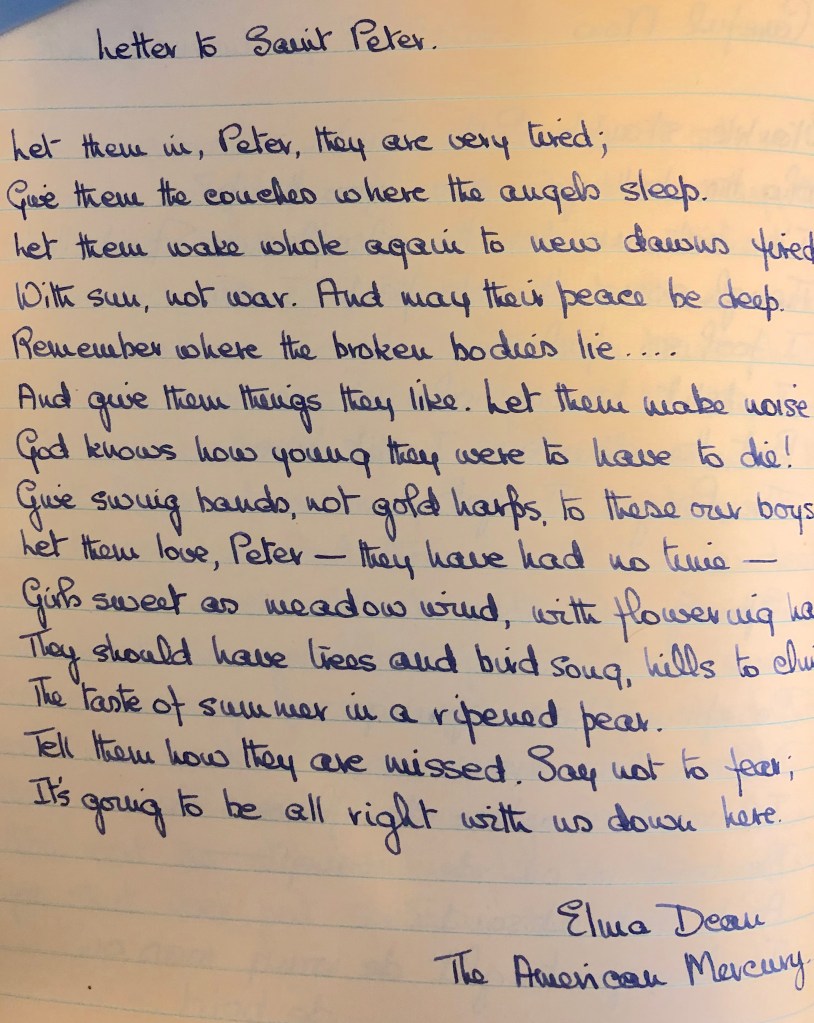 Letter to Saint Peter.
Let them in, Peter, they are very tired;
Give them the couches where the angels sleep.
Let them wake whole again to new dawns fired
With sun, not war. And may their peace be deep.
Remember where the broken bodies lie....
And give them things they like. Let them make noise
God knows how young they were to have to die!
Give swing bands, not gold harps, to these our boys
Let them love, Peter – they have had no time –
Girls sweet as meadow wind, with flowering ha
They should have trees and bird song, hills to cli
The taste of summer in a ripened pear.
Tell them how they are missed. Say not to fear;
It's going to be all right with us down here.
Elma Dean
The American Mercury.